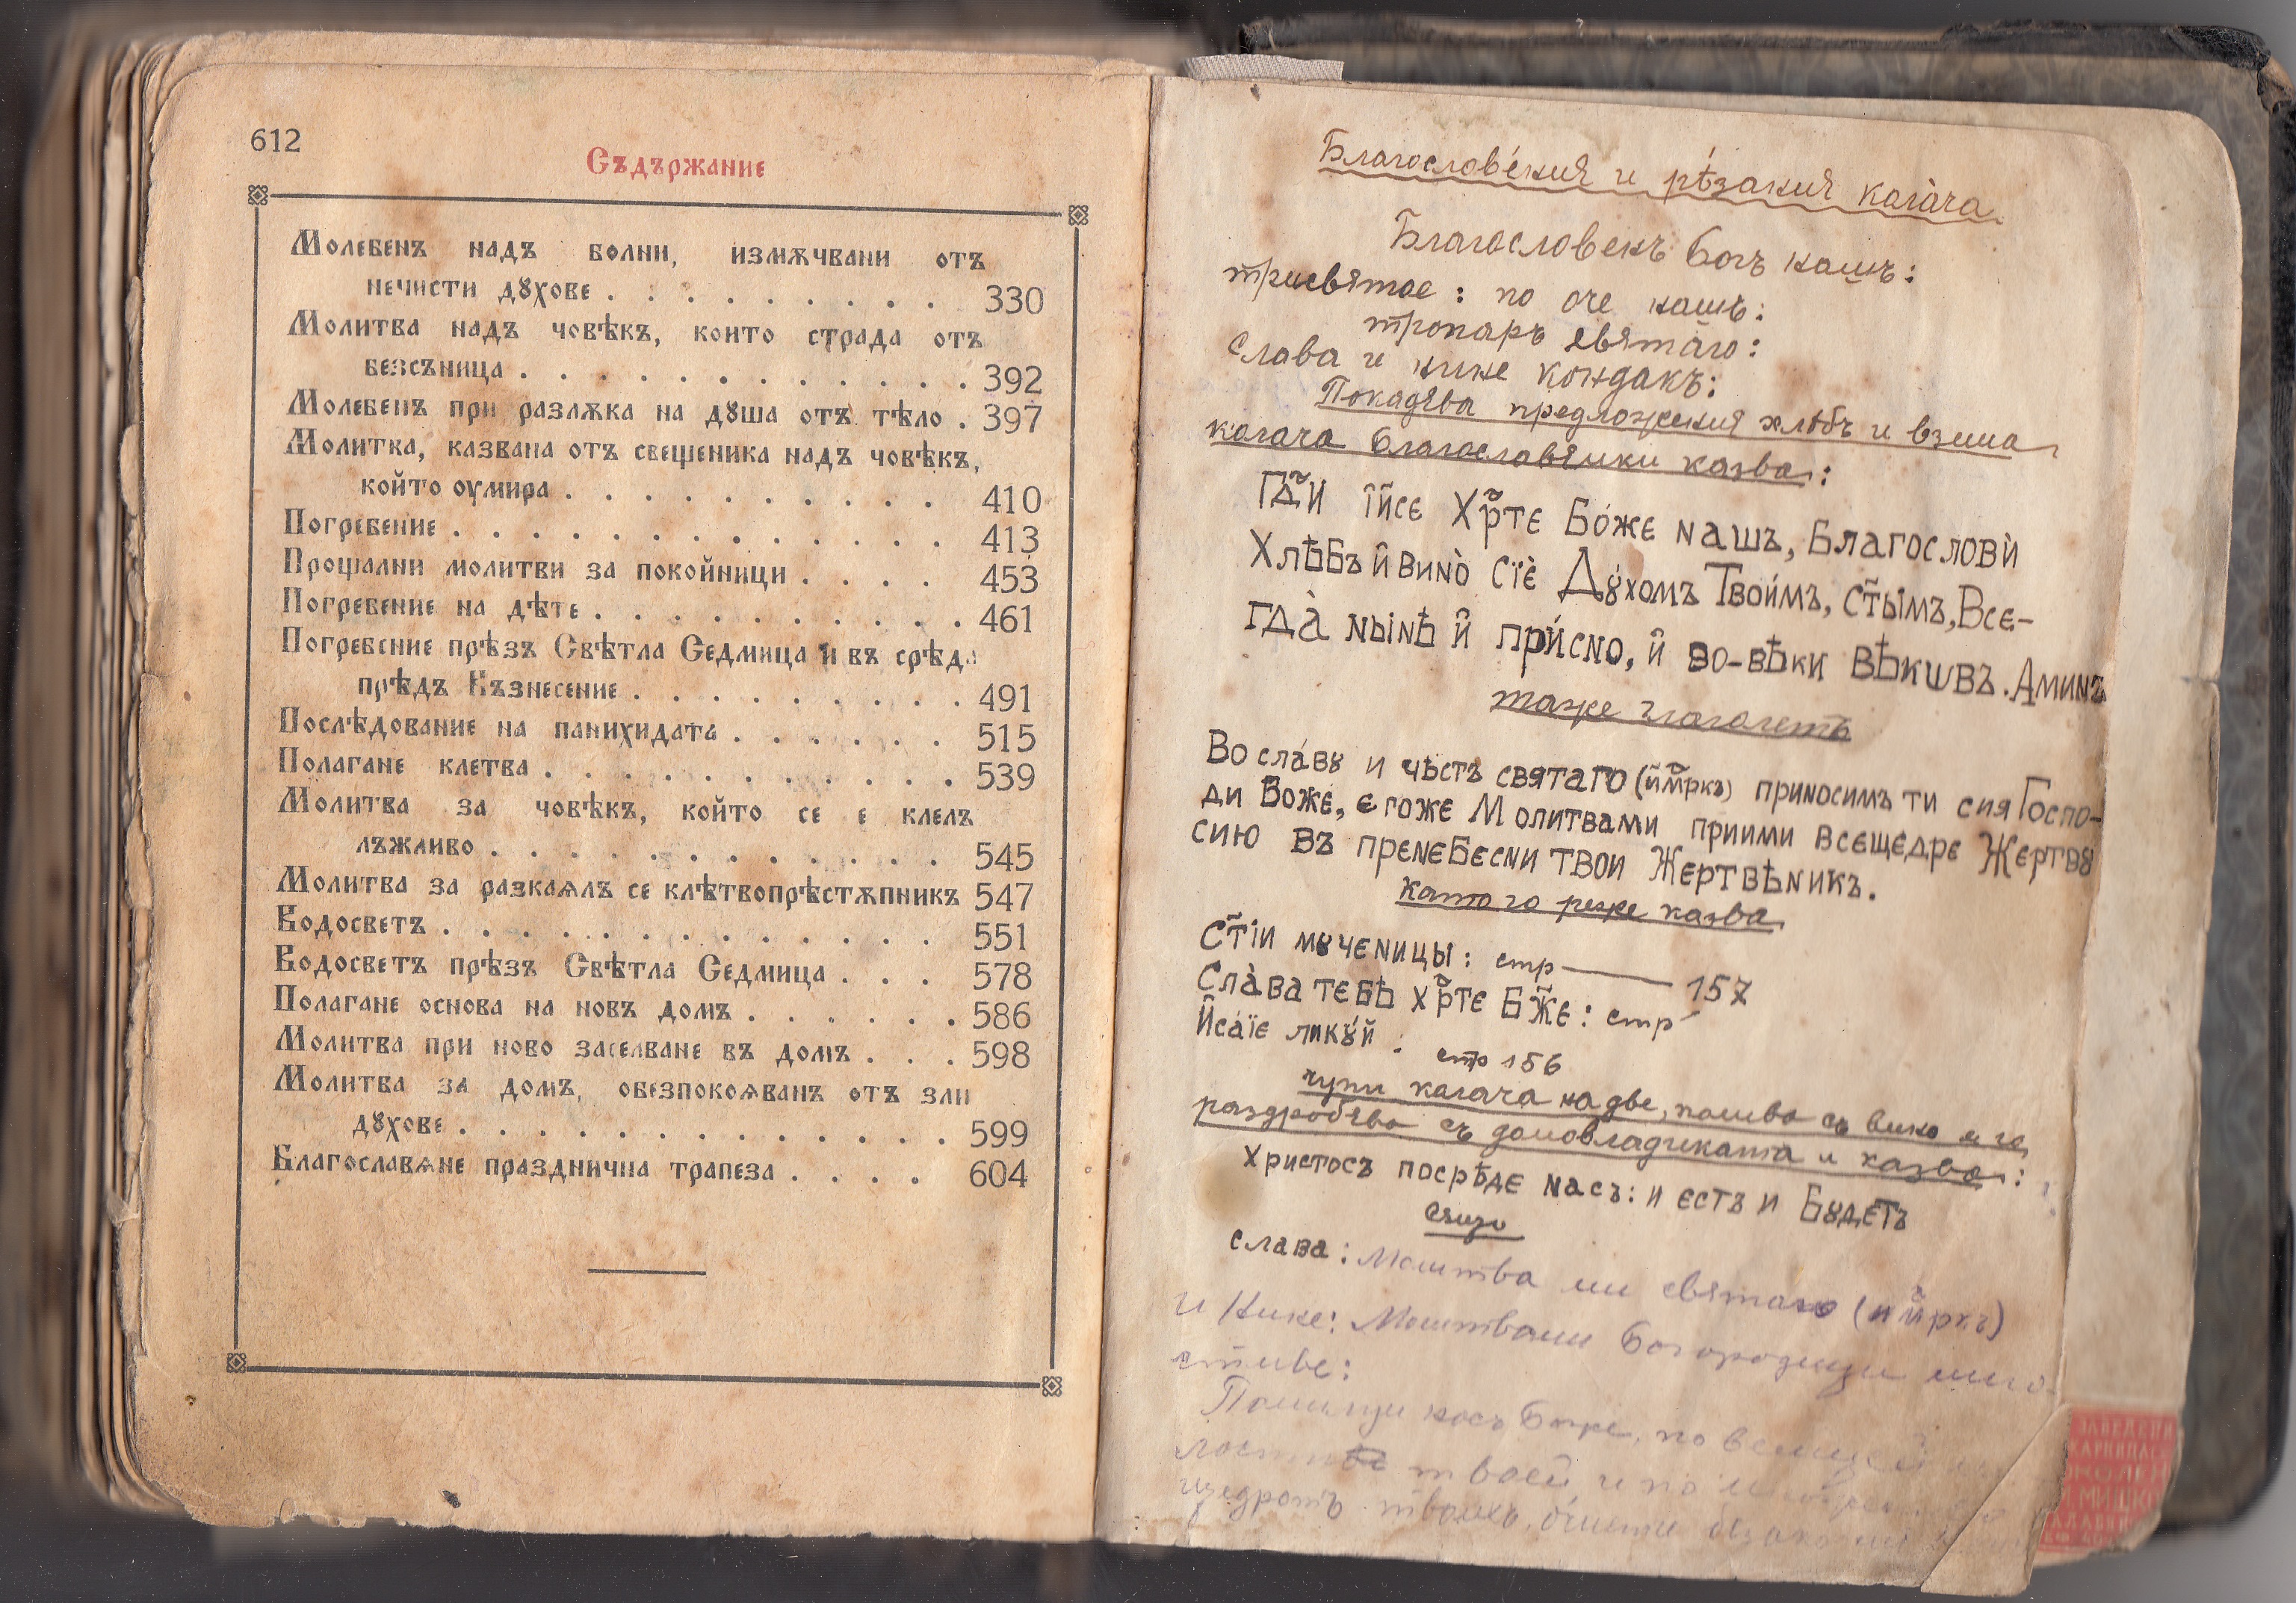 612
Съдържание
Молебенъ надъ болни, измѫчвани отъ
нечисти дꙋхове . . . . . . . . . 330
Молитва надъ човѣкъ, конто страда отъ
безсъница . . . . . . . . . . . . 392
Молебенъ при разлѫка на дꙋша отъ тѣло . 397
Молитка, казвана отъ свещеника надъ човѣкъ,
който оумира . . . . . . . . . . 410
Погребение . . . . . . . . . . . . . 413
Прощални молитви за покойници . . . . 453
Погребение на дѣте . . . . . . . . . . 461
Погребение прѣзъ Свѣтла Седмица и въ срѣда
прѣдъ Възнесение . . . . . . . . . 491
Послѣдование на панихидата . . . . . . 515
Полагане клетва . . . . . . . . . . . 539
Молитва за човѣкъ, който се е клелъ
лъжливо . . . . . . . . . . . . 545
Молитва за разкаѧлъ се клѣтвопрѣстѫпникъ 547
Водосветъ . . . . . . . . . . . . . 551
Водосветъ прѣзъ Свѣтла Седмица . . . 578
Полагане основа на новъ домъ . . . . . . 586
Молитва при ново заселване въ домъ . . . 598
Молитва за домъ, обезпокоѧванъ отъ зли
дꙋхове . . . . . . . . . . . . . 599
Благославѧне празднична трапеза . . . . 604
Благослове́ния и рѣ́зания кала́ча
Благословенъ Богъ нашъ:
трисвятое: по оче нашъ:
тропаръ святаго:
Слава и нине кондакъ:
Покадява предложения хлѣбъ и взима
калача благославяики казва:
Гд҃и і҆и҃се Хр҃те Бо́же нашъ, Благослови̏
Хлѣбъ и҆ вино̀ сїѐ Дꙋ́хомъ Твои́мъ, ст҃ымъ, Все-
гда̀ нынѣ и҆ при́сно, и҆ во-вѣки вѣкѡвъ. Аминъ
таже глаголетъ
Во сла́вꙋ и чѣстъ святаго (и҆м҃ркъ) приносимъ ти сия Госпо-
ди Боже, егоже Молитвами приими всещедре Жертвꙋ
сию въ пренебесни твои Жертвѣникъ.
като го реже казва
Ст҃іи мꙋченицы: стр — 157
Сла̀ва тебѣ хр҃те Бж҃е: стр
И҆са́їе ликꙋ́й: стр 156
чупи калача на две, полива съ вино и го
раздробява съ домовладиката и казва:
Христосъ посрѣде насъ: и естъ и Бꙋдетъ
слава: Молитва ми святаго (и м҃ркъ)
и Нине: Молитвами Богородици мило-
стиве:
Помилуи насъ Боже, по велицей
твоей, и по
щедротъ твоихъ,
ЗАВЕДЕНИ